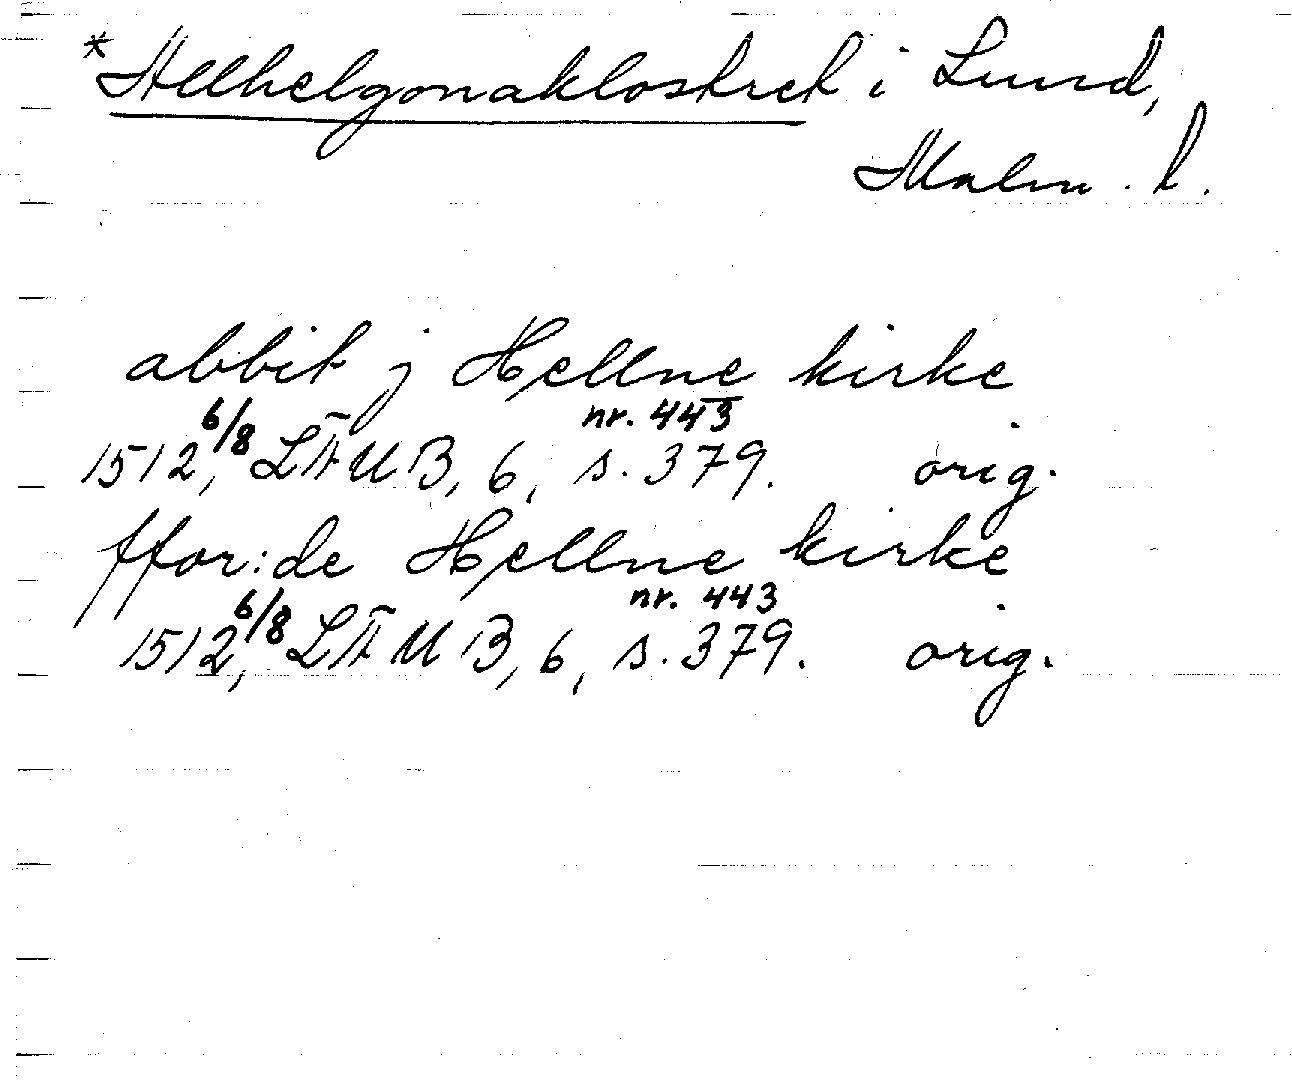 *Allhelgonaklostret i Lund,
Malm. l.
abbit j Hellne kirke
nr. 443
1512, 6/8 LÄUB, 6, s. 379. orig.
ffor:de Hellne kirke
nr. 443
1512, 6/8 LÄUB, 6, s. 379. orig.